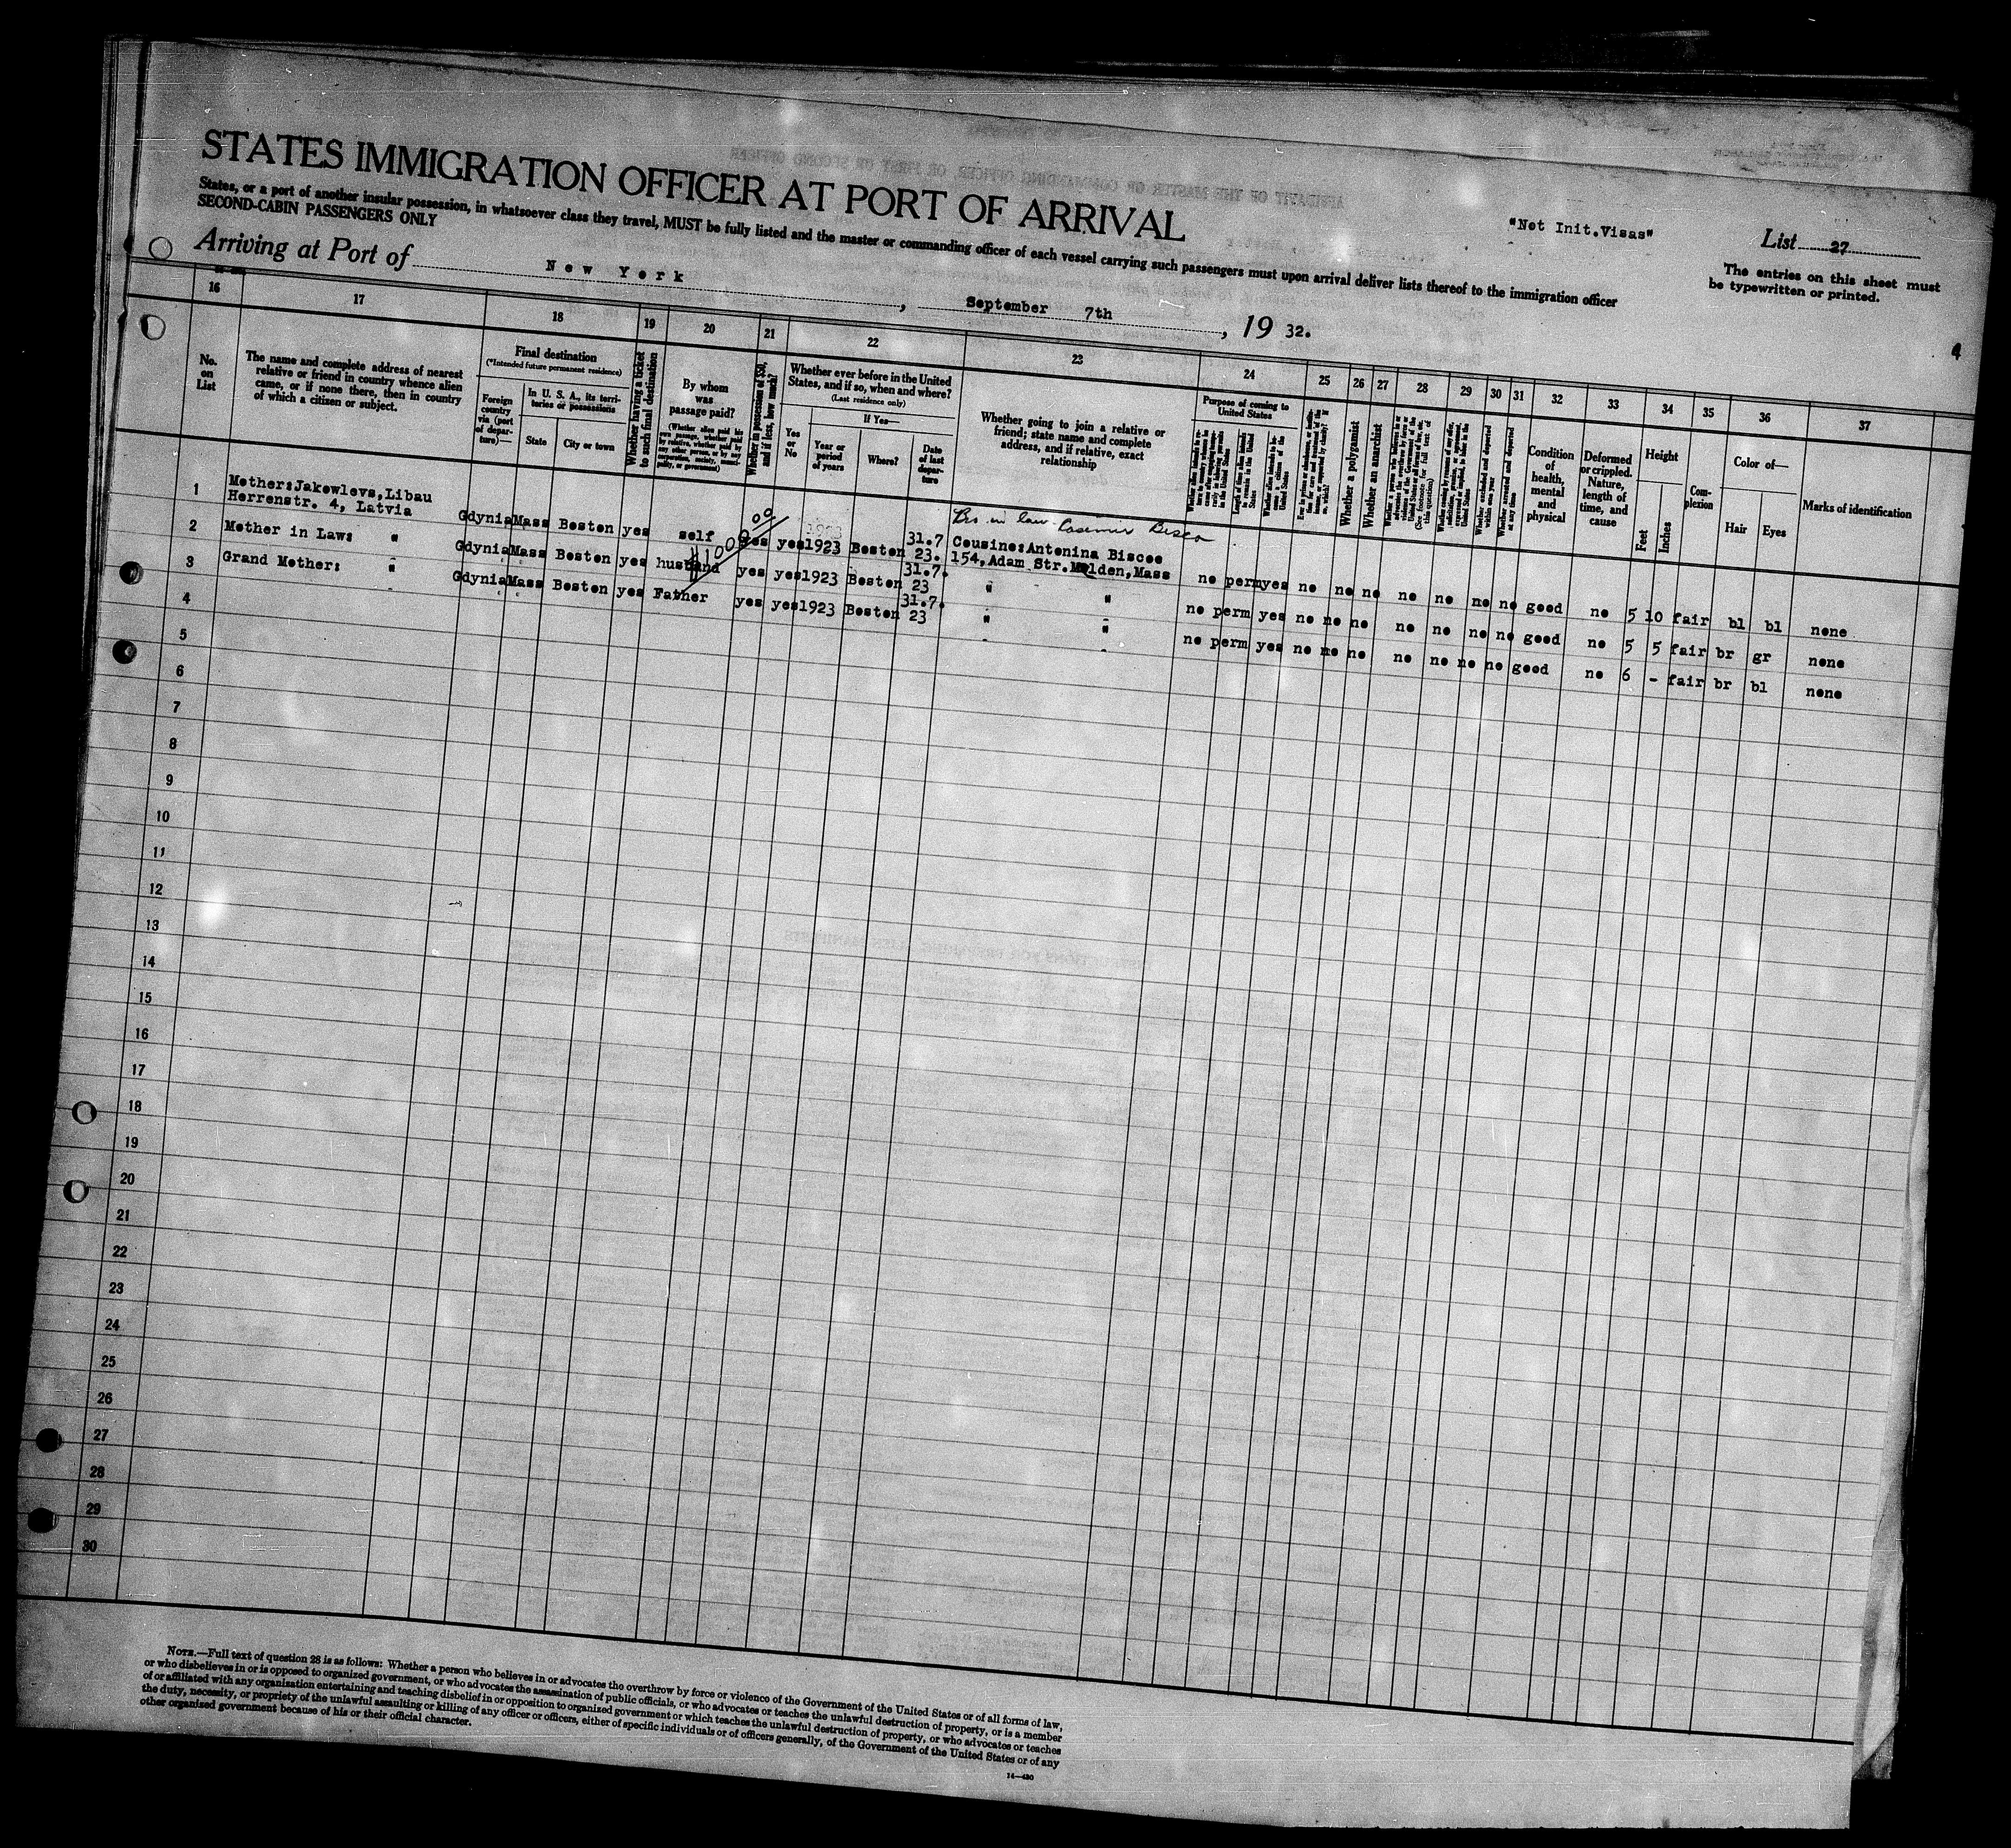 STATES IMMIGRATION OFFICER AT PORT OF ARRIVAL
States, or a port of another insular possession, in whatsoever class they travel, MUST be fully listed and the master or commanding officer of each vessel carrying such passengers must upon arrival deliver lists thereof to the immigration officer
SECOND-CABIN PASSENGERS ONLY
"Not Init.Visas"
List 27
The entries on this sheet must
be typewritten or printed.
Arriving at Port of New York, September 7th, 19 32.
16 17 18 19 20 21 22 23 24 25 26 27 28 29 30 31 32 33 34 35 36 37
No.
on
List
The name and complete address of nearest
relative or friend in country whence alien
came, or if none there, then in country
of which a citizen or subject.
Final destination
(*Intended future permanent residence)
Foreign
country
via (port
of depar-
ture)—
In U. S. A., its terri-
tories or possessions
State
City or town
Whether having a ticket
to such final destination
By whom
was
passage paid?
(Whether alien paid his
own passage, whether paid
by relative, whether paid by
any other person, or by any
corporation, society, munici-
pality, or government)
Whether in possession of $50,
and if less, how much?
Whether ever before in the United
States, and if so, when and where?
(Last residence only)
Yes
or
No
If Yes—
Year or
period
of years
Where?
Date
of last
depar-
ture
Whether going to join a relative or
friend; state name and complete
address, and if relative, exact
relationship
Purpose of coming to
United States
Length of time alien intends
to remain in the United
States
Whether alien intends to be-
come a citizen of the
United States
Whether a polygamist
Whether an anarchist
(See footnote for full text of
this question)
Whether excluded and deported
within one year
Whether arrested and deported
at any time
Condition
of
health,
mental
and
physical
Deformed
or crippled.
Nature,
length of
time, and
cause
Height
Feet
Inches
Com-
plexion
Color of—
Hair
Eyes
Marks of identification
1 Mother:Jakowlevs,Libau
Herrenstr. 4, Latvia
Gdynia Mass Boston yes self $100 00 yes yes 1923 Boston 31.7 23.
Bro. in law Casemir Bisco
Cousine:Antonina Biscoe
154,Adam Str.Malden,Mass
no perm yes no no no no no no no good no 5 10 fair bl bl none
2 Mother in Law: "
Gdynia Mass Boston yes husband yes yes 1923 Boston 31.7. 23 " "
no perm yes no no no no no no no good no 5 5 fair br gr none
3 Grand Mother: "
Gdynia Mass Boston yes Father yes yes 1923 Boston 31.7. 23 " "
no perm yes no no no no no no no good no 6 - fair br bl none
4
5
6
7
8
9
10
11
12
13
14
15
16
17
18
19
20
21
22
23
24
25
26
27
28
29
30
NOTE.—Full text of question 28 is as follows: Whether a person who believes in or advocates the overthrow by force or violence of the Government of the United States or of all forms of law,
or who disbelieves in or is opposed to organized government, or who advocates the assassination of public officials, or who advocates or teaches the unlawful destruction of property, or is a member
of or affiliated with any organization entertaining and teaching disbelief in or opposition to organized government or which teaches the unlawful destruction of property, or who advocates or teaches
the duty, necessity, or propriety of the unlawful assaulting or killing of any officer or officers, either of specific individuals or of officers generally, of the Government of the United States or of any
other organized government because of his or their official character.
14—430